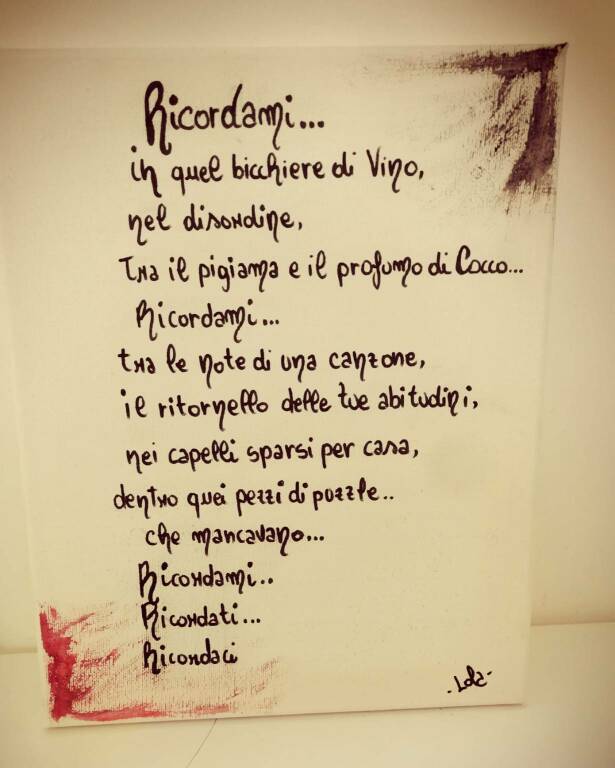 Ricordami...
in quel bicchiere di Vino,
nel disordine,
tra il pigiama e il profumo di Cocco...
Ricordami...
tra le note di una canzone,
il ritornello delle tue abitudini,
nei capelli sparsi per casa,
dentro quei pezzi di puzzle..
che mancavano...
Ricordami..
Ricordati...
Ricordaci
-Lola-